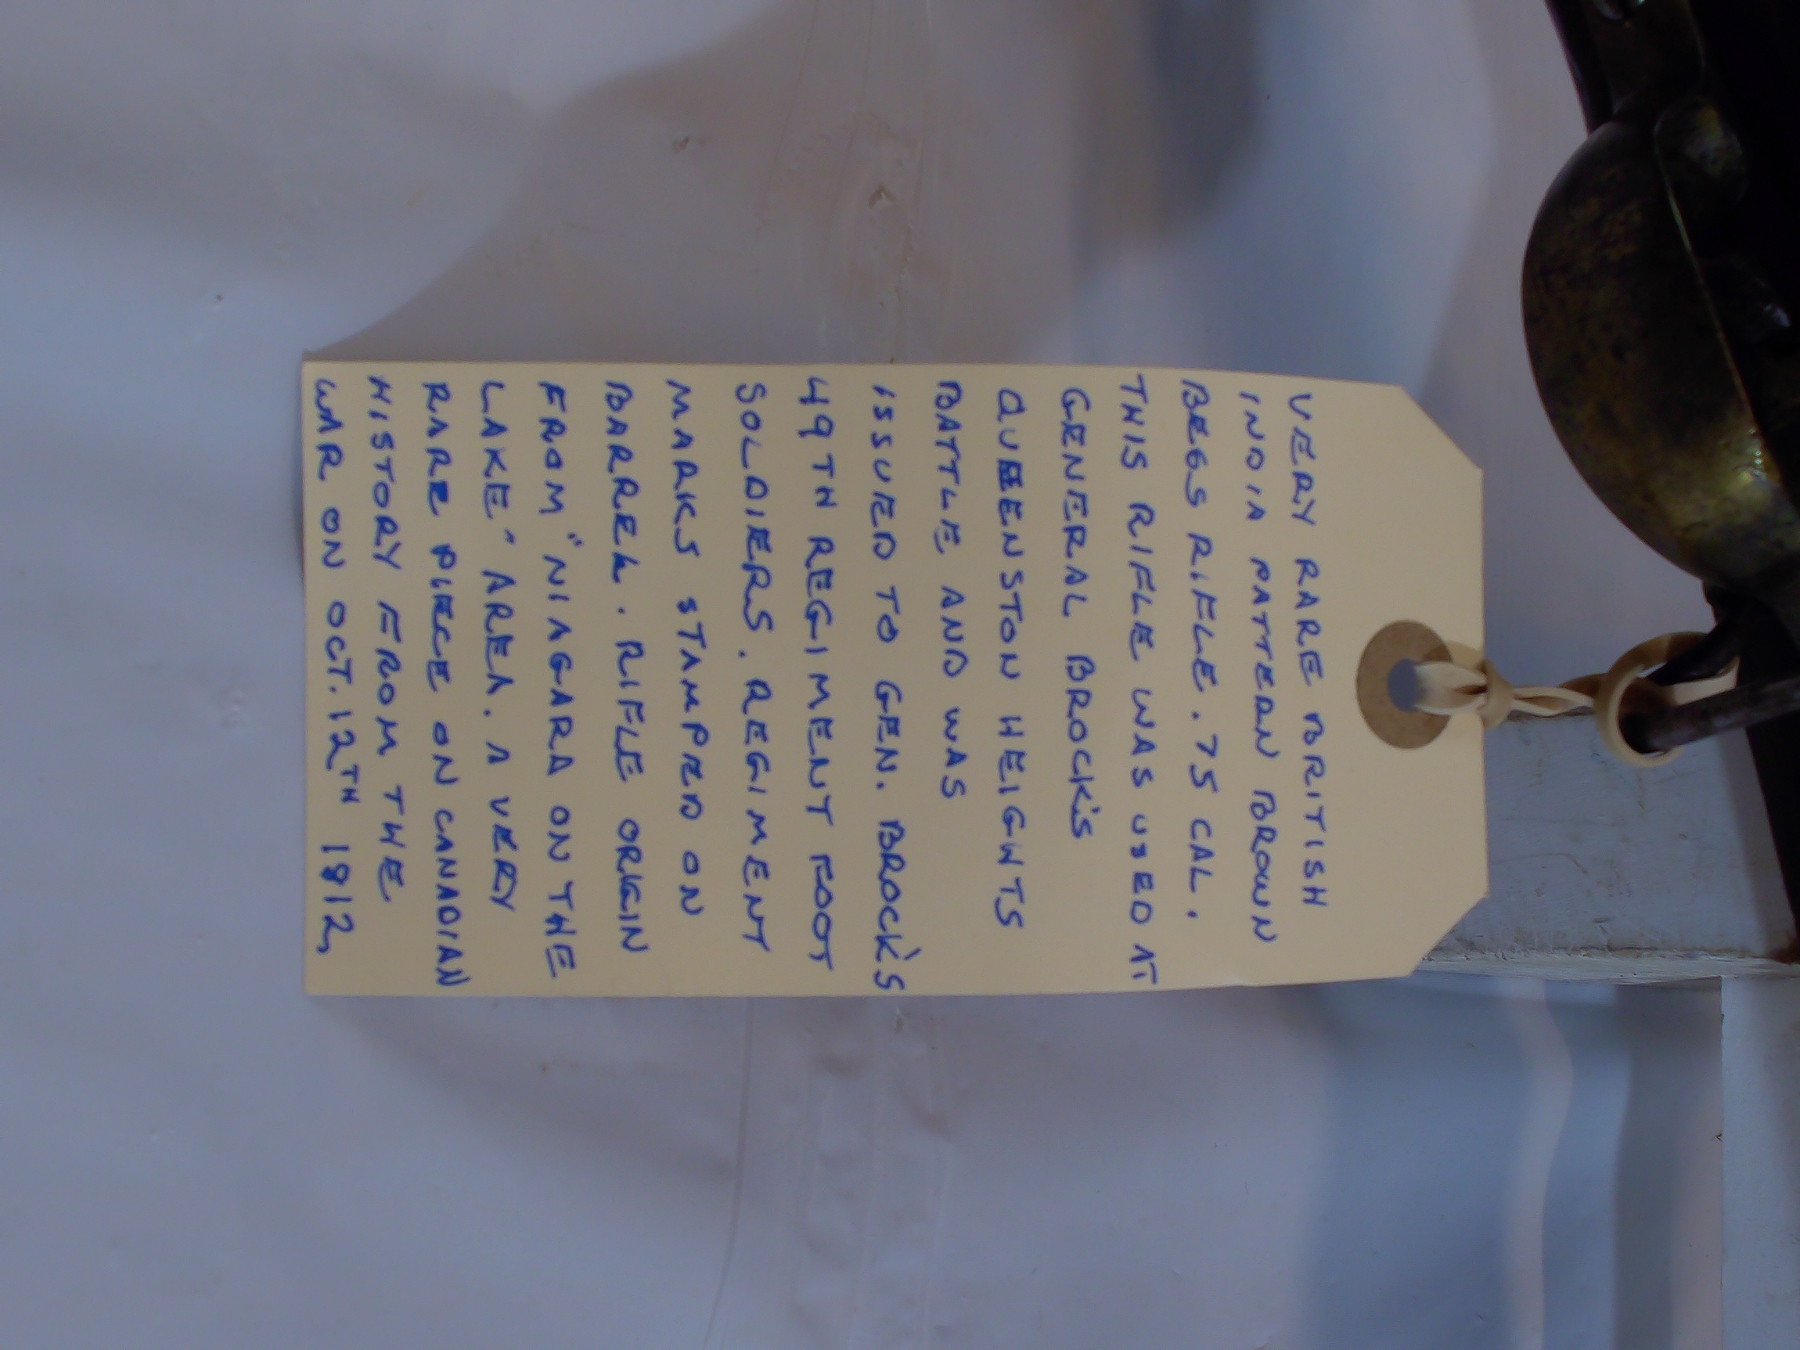 VERY RARE BRITISH
INDIA PATTERN BROWN
BEGS RIFLE .75 CAL.
THIS RIFLE WAS USED AT
GENERAL BROCK'S
QUEENSTON HEIGHTS
BATTLE AND WAS
ISSUED TO GEN. BROCK'S
49TH REGIMENT FOOT
SOLDIERS. REGIMENT
MARKS STAMPED ON
BARREL. RIFLE ORIGIN
FROM "NIAGARA ON THE
LAKE" AREA. A VERY
RARE PIECE ON CANADIAN
HISTORY FROM THE
WAR ON OCT. 12TH 1812,